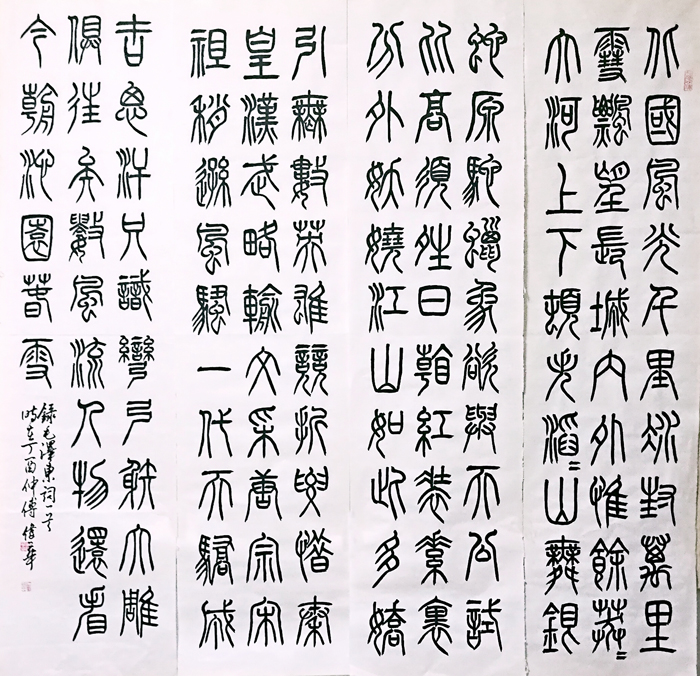 北國風光千里冰封萬里
雪飄望長城內外惟餘莽〻
大河上下頓失滔〻山舞銀
蛇原馳蠟象欲與天公試
比高須晴日看紅裝素裹
分外妖嬈江山如此多嬌
引無數英雄競折腰惜秦
皇漢武略輸文采唐宗宋
祖稍遜風騷一代天驕成
吉思汗只識彎弓射大雕
俱往矣數風流人物還看
今朝沁園春雪
錄毛澤東詞一首
時在丁酉仲傅華